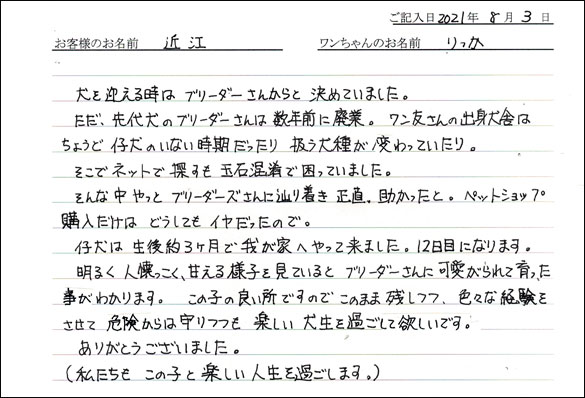 ご記入日 2021年 8月 3日
お客様のお名前 近江 ワンちゃんのお名前 りっか
犬を迎える時は ブリーダーさんからと 決めていました。
ただ、先代犬のブリーダーさんは 数年前に廃業。 ワン友さんの出身犬舎は
ちょうど 仔犬のいない時期だったり 扱う犬種が 変わっていたり。
そこでネットで 探すも 玉石混淆で困っていました。
そんな中 やっと ブリーダーズさんに辿り着き 正直、助かったと。ペットショップ
購入だけは どうしても イヤだったので。
仔犬は 生後約3ヶ月で 我が家へやって来ました。12日目になります。
明るく 人懐っこく、甘える様子を見ていると ブリーダーさんに可愛がられて育った
事がわかります。 この子の良い所ですので このまま 残しつつ、色々な 経験を
させて 危険からは守りつつも 楽しい 犬生を過ごして欲しいです。
ありがとうございました。
(私たちも この子と楽しい人生を過ごします。)